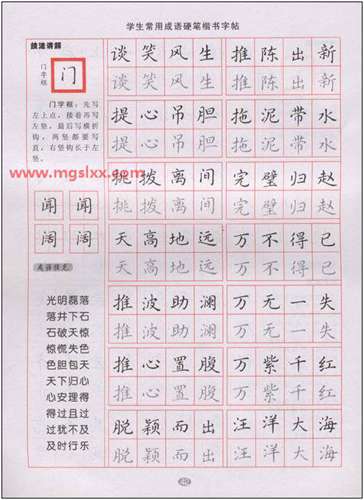 学生常用成语硬笔楷书字帖
技法讲解
门字框
门
门字框：先写
左上点，接着再写
左竖，最后写横折
钩，两竖都要写
直，右竖钩长于左
竖。
www.mgslxx.com
闻 闻
阔 阔
成语接龙
光明磊落
落井下石
石破天惊
惊慌失色
色胆包天
天下归心
心安理得
得过且过
过犹不及
及时行乐
谈笑风生 推陈出新
谈笑风生 推陈出新
提心吊胆 拖泥带水
提心吊胆 拖泥带水
挑拨离间 完璧归赵
挑拨离间 完璧归赵
天高地远 万不得已
天高地远 万不得已
推波助澜 万无一失
推波助澜 万无一失
推心置腹 万紫千红
推心置腹 万紫千红
脱颖而出 汪洋大海
脱颖而出 汪洋大海